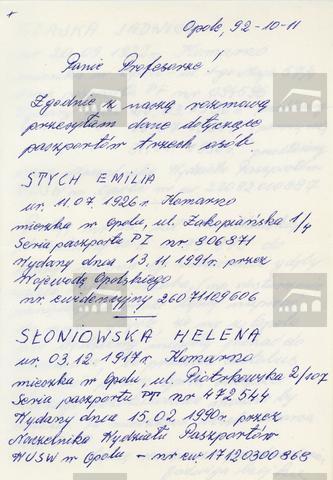 Opole, 92-10-11
Panie Profesorze!
Zgodnie z naszą rozmową
przesyłam dane dotyczące
paszportów trzech osób.
STYCH EMILIA
ur. 11.07.1926 r. Komarno
mieszka w Opolu, ul. Zakopiańska 1/4
Seria paszportu PI nr 806871
Wydany dnia 13.11.1991r. przez
Wojewodę Opolskiego
nr ewidencyjny 26071109606
SŁONIOWSKA HELENA
ur. 03.12.1917 r. Komarno
mieszka w Opolu, ul. Piotrkowska 2/107
Seria paszportu nr 472544
Wydany dnia 15.02.1990r. przez
Naczelnika Wydziału Paszportów
WUSW w Opolu - nr ew 17120300868